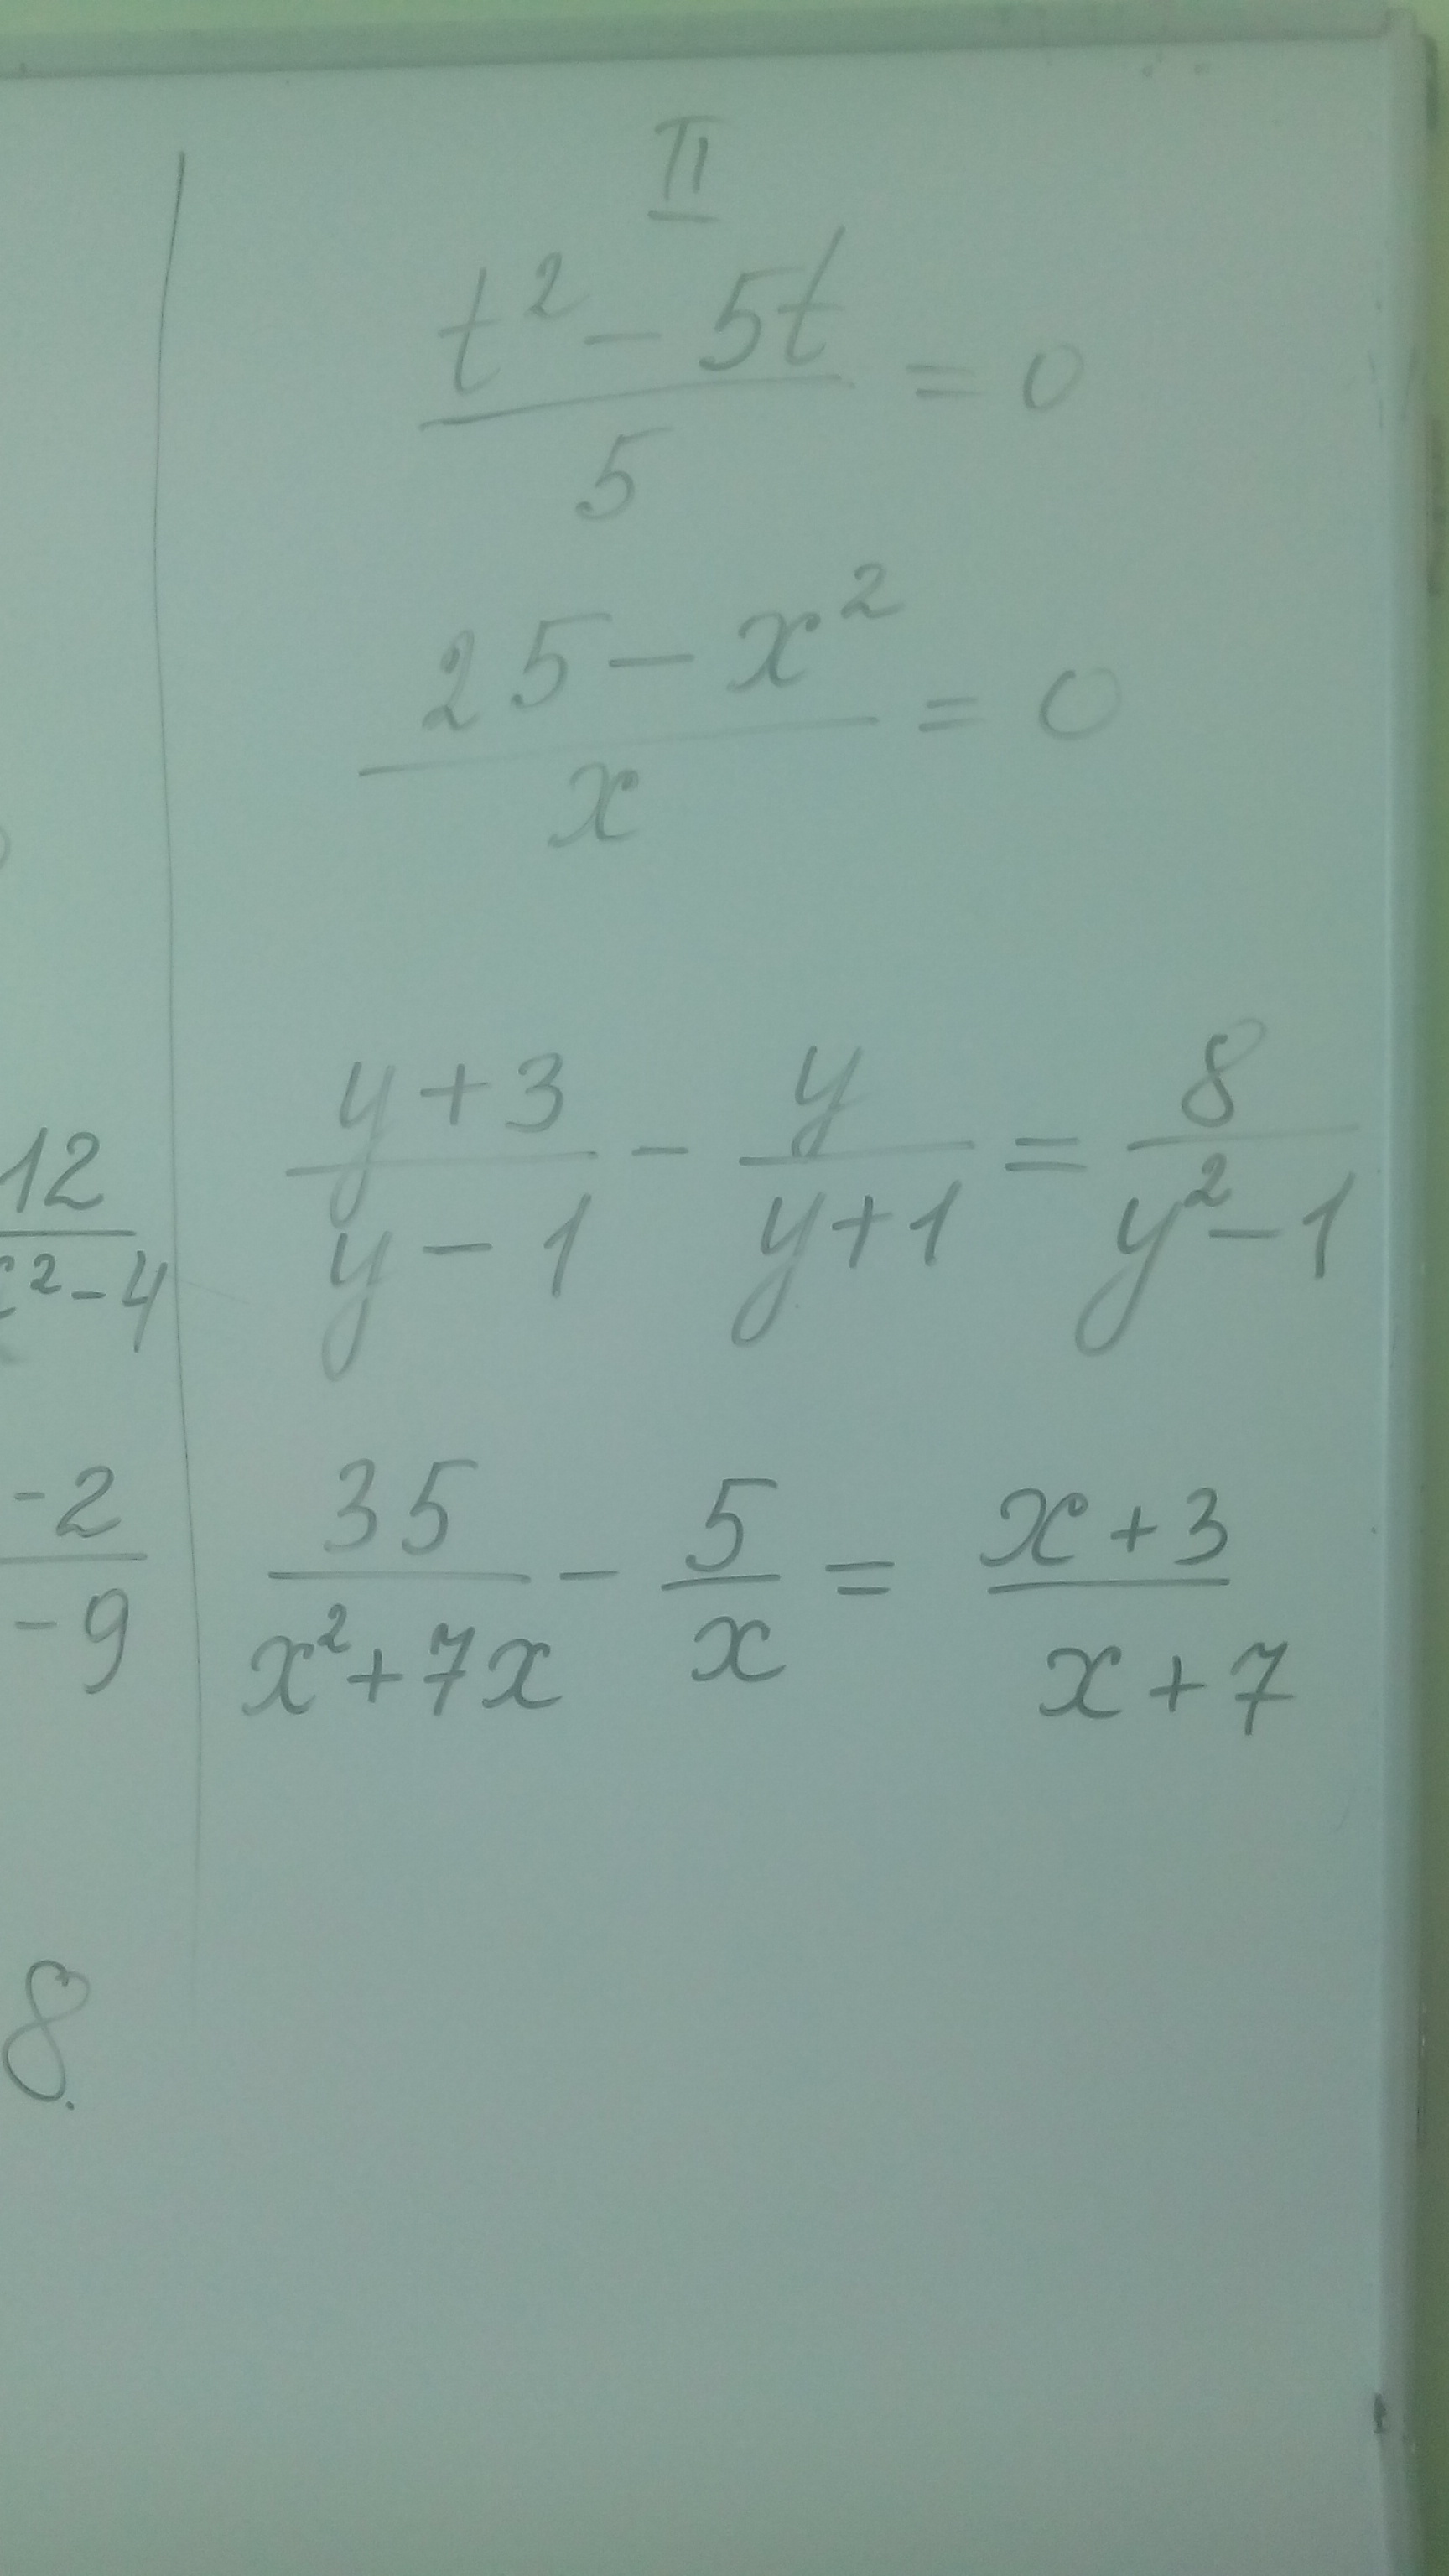 II
t² - 5t / 5 = 0
25 - x² / x = 0
12 / x² - 4
y + 3 / y - 1 - y / y + 1 = 8 / y² - 1
-2 / -9
35 / x² + 7x - 5 / x = x + 3 / x + 7
8.